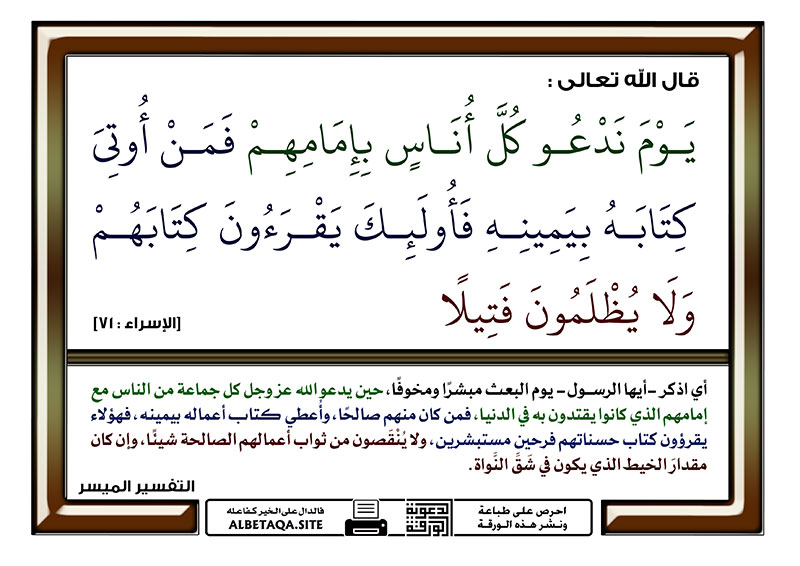 قال الله تعالى :
يَـوْمَ نَدْعُـو كُلَّ أُنَـاسٍ بِإِمَامِهِـمْ فَمَـنْ أُوتِيَ
كِتَابَـهُ بِيَمِينِـهِ فَأُولَٰئِكَ يَقْـرَءُونَ كِتَابَهُـمْ
وَلَا يُظْلَمُونَ فَتِيلًا
[الإسراء : ٧١]
أي اذكر –أيها الرسول– يوم البعث مبشرًا ومخوفًا، حين يدعو الله عز وجل كل جماعة من الناس مع
إمامهم الذي كانوا يقتدون به في الدنيا، فمن كان منهم صالحًا، وأُعطي كتاب أعماله بيمينه، فهؤلاء
يقرؤون كتاب حسناتهم فرحين مستبشرين، ولا يُنْقَصون من ثواب أعمالهم الصالحة شيئًا، وإن كان
مقدارَ الخيط الذي يكون في شَقِّ النَّواة.
التفسير الميسر
احرص على طباعة
ونشر هذه الورقة
الدعوية
الورقة
فالدال على الخير كفاعله
ALBETAQA.SITE